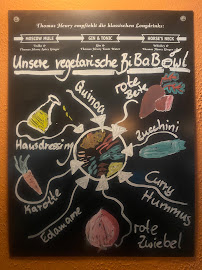 Thomas Henry empfiehlt die klassischen Longdrinks:
MOSCOW MULE
GIN & TONIC
HORSE'S NECK
Unsere vegetarische BiBaBowl
Quinoa
rote
Bete
Hausdressing
Zucchini
Karotte
Curry
Hummus
Edamame
rote
Zwiebel